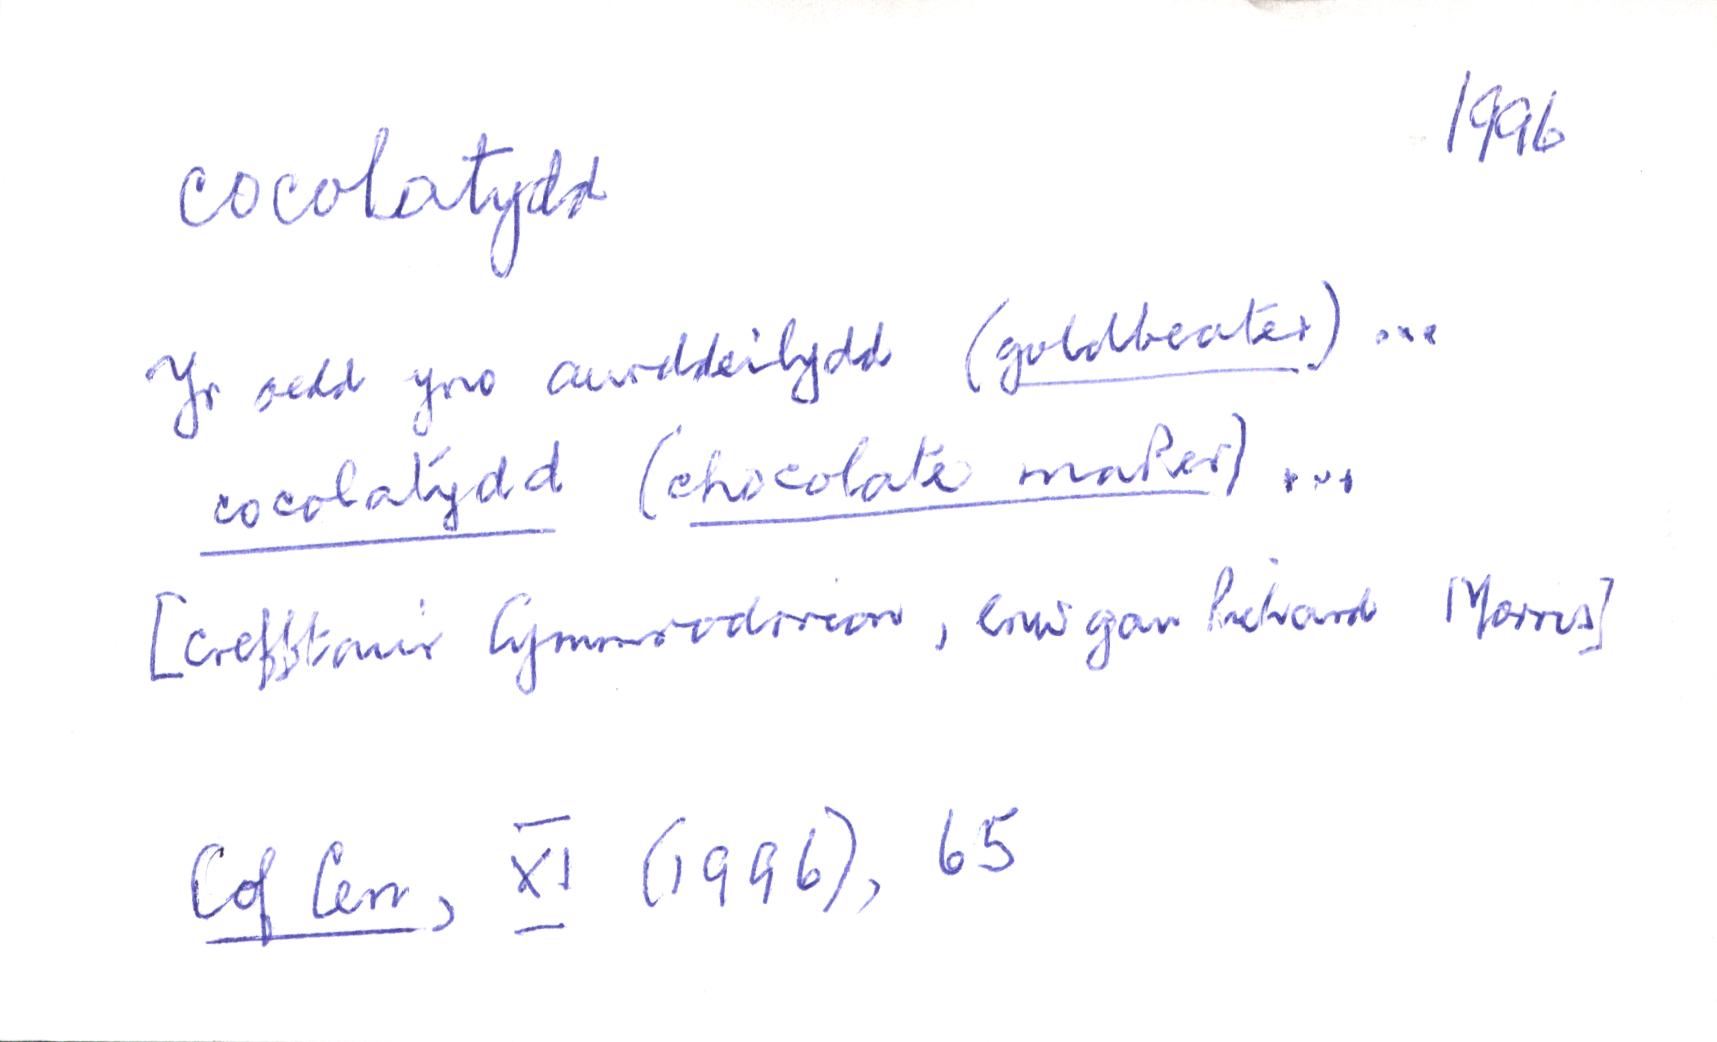 1996
cocolatydd
Yr oedd yno aurddeilydd (goldbeater) ...
cocolatydd (chocolate maker) ...
[crefftwir Cymmrodorion, enwi gan Richard Morris]
Cof Cen, XI (1996), 65